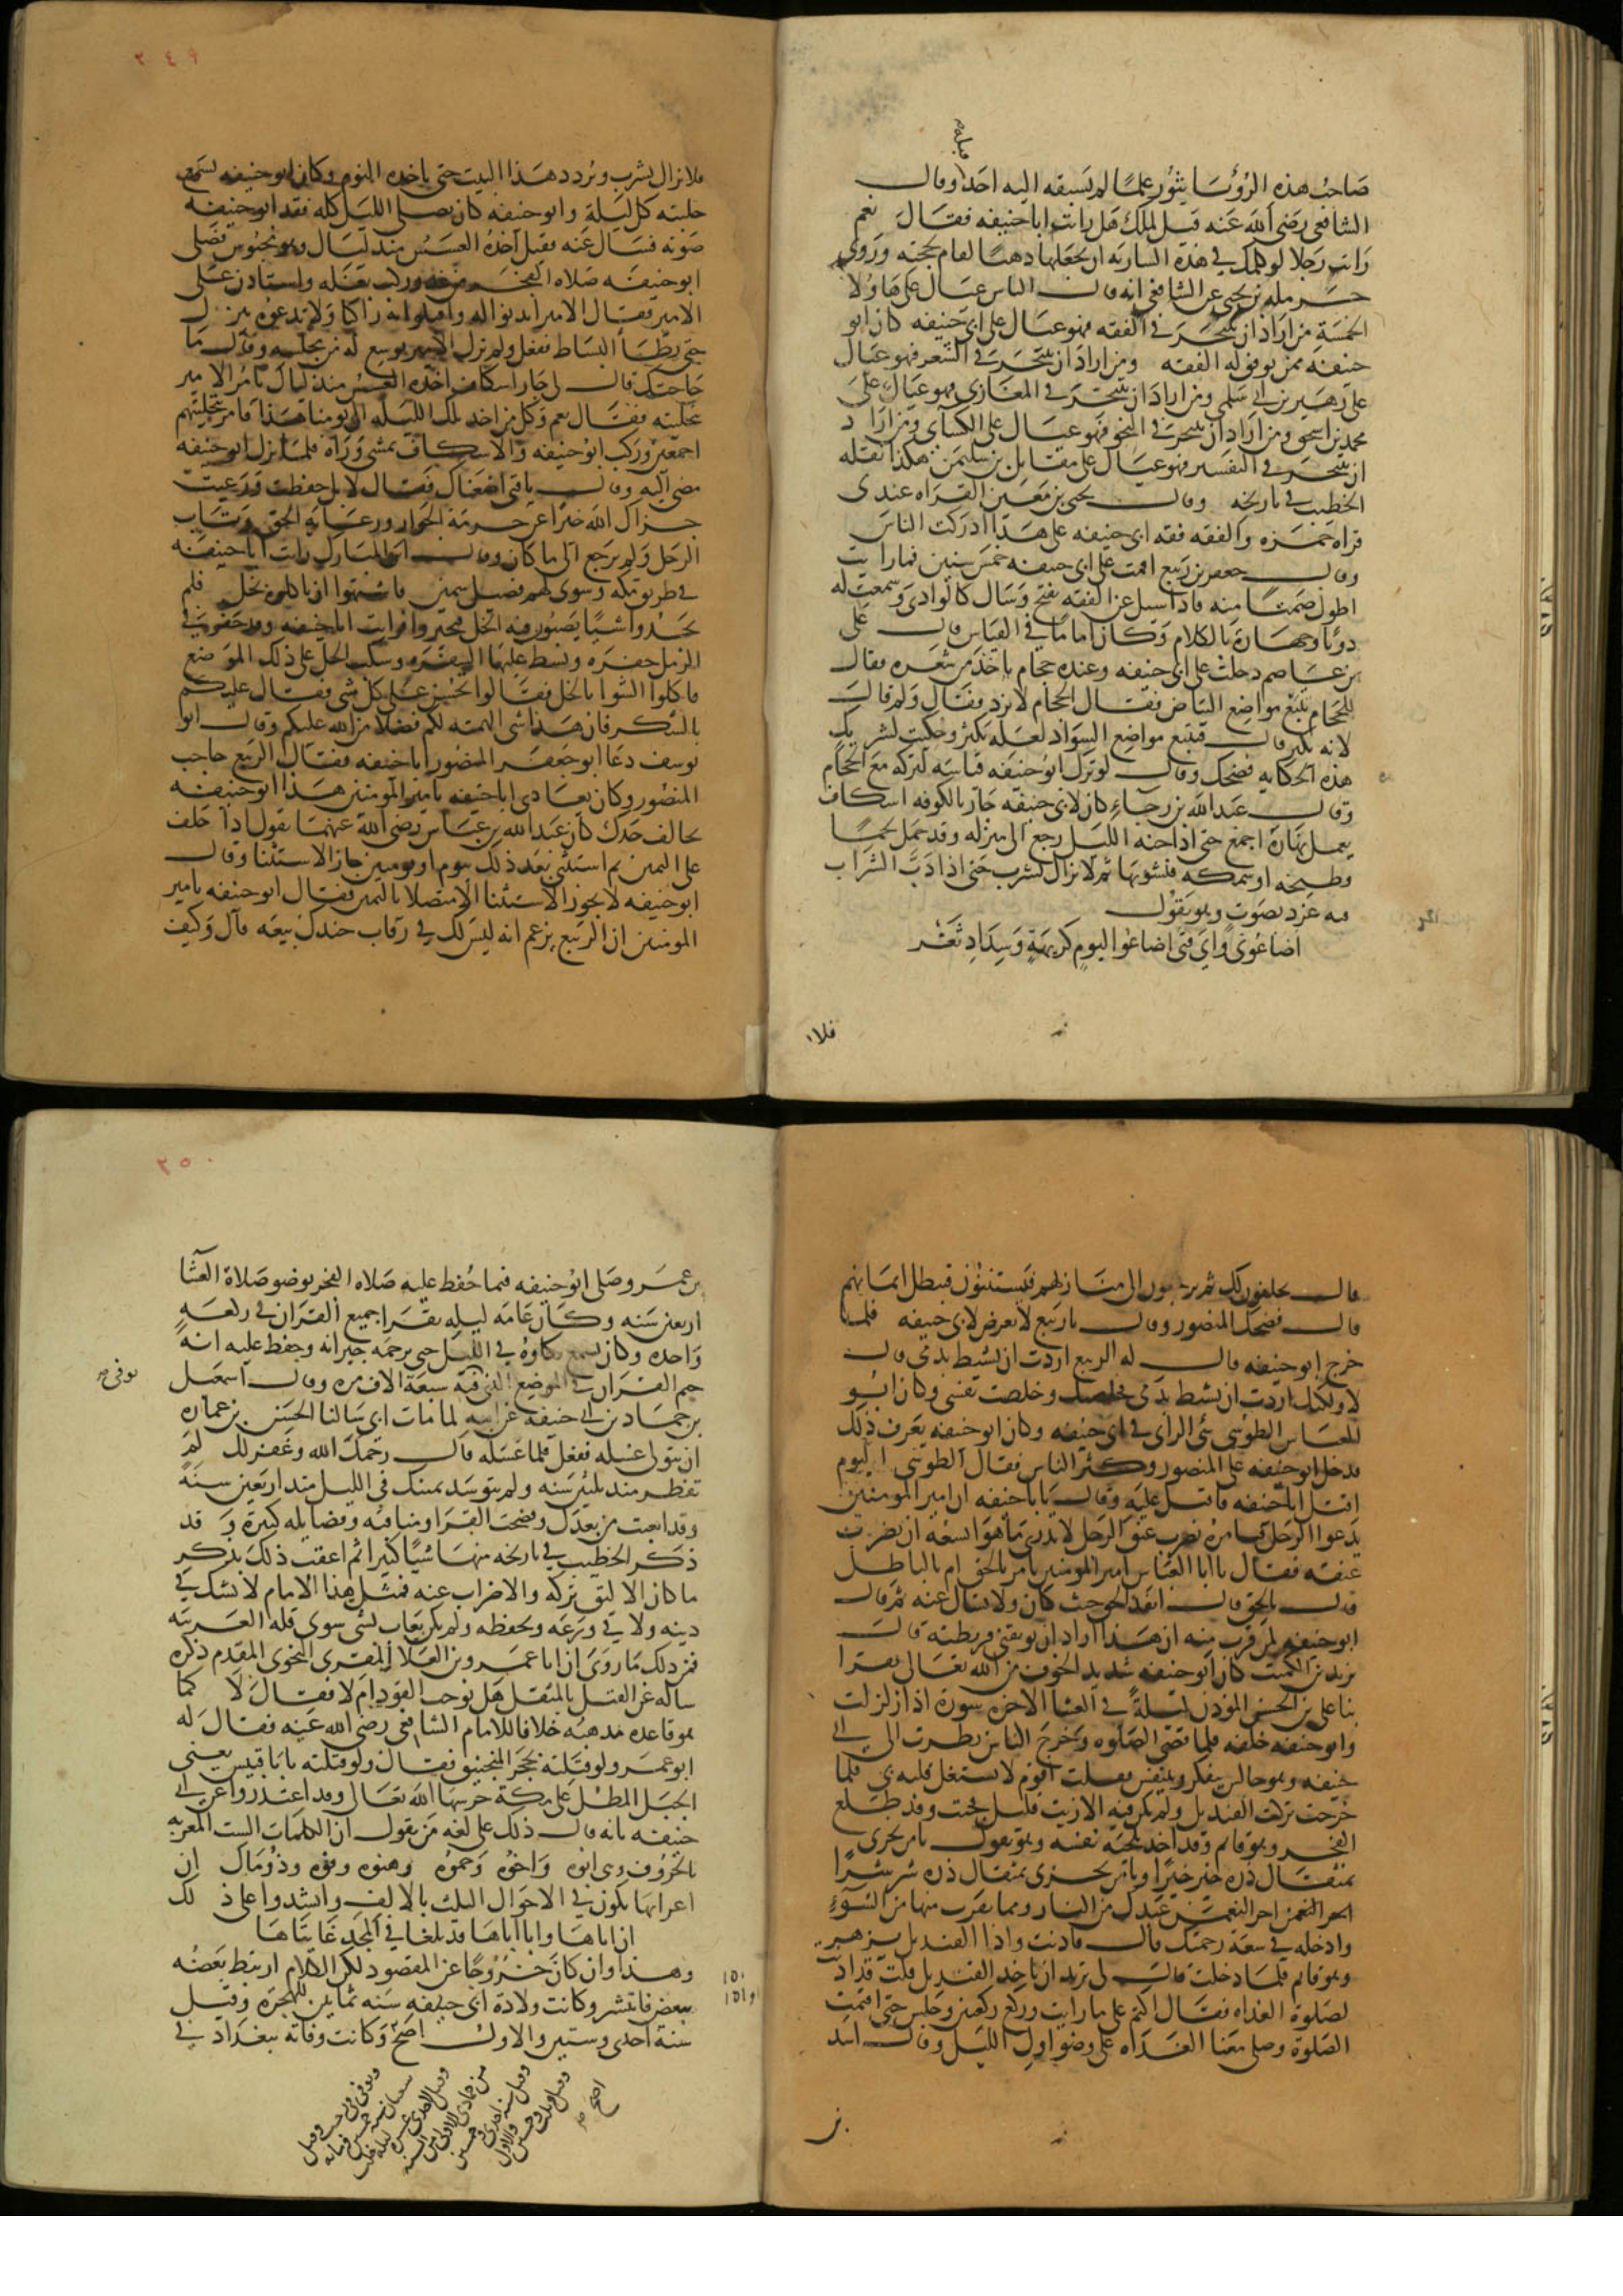 صاحب هذه الرؤسا يثور علما لم يسبقه اليه احد وقال
قبله م
الشافعي رضى الله عنه قيل لملك هل رايت ابا حنيفه فقال نعم
رايت رجلا لو كلمك في هذه الساريه ان يجعلها دهبا لقام بحجته وروى
حرمله بن يحيى عن الشافعي انه قال الناس عيال على هاولا
الخمسة من اراد ان يتبحر في الفقه فهو عيال على ابي حنيفه كان ابو
حنيفه ممن يوفق له الفقه ومن اراد ان يتبحر في الشعر فهو عيال
على زهير بن ابي سلمى ومن اراد ان يتبحر في المغازى فهو عيال على
محمد بن اسحق ومن اراد ان يتبحر في النحو فهو عيال على الكسآى ومن اراد
ان يتبحر في التفسير فهو عيال على مقاتل بن سليمن هكذا نقله
الخطيب في تاريخه وقال يحيى بن معين القراه عندى
قراه حمزه والفقه فقه ابي حنيفه على هذا ادركت الناس
وقال جعفر بن ربيع اقمت على ابي حنيفه خمس سنين فما رايت
اطول صمتا منه فاذا سيل عن الفقه تفتح وسال كالوادى وسمعت له
دويا وجهارة بالكلام وكان اماما في القياس قال على
بن عاصم دخلت على ابي حنيفه وعنده حجام ياخذ من شعره فقال
للحجام تتبع مواضع البياض فقال الحجام لا تزد فقال ولم قال
لانه يكثر قال فتتبع مواضع السواد لعله يكثر وحكيت لشريك
هذه الحكايه فضحك وقال لو ترك ابو حنيفه قياسه لتركه مع الحجام
وقال عبد الله بن رجاء كان لابي حنيفه جار بالكوفه اسكاف
يعمل نهاره اجمع حتى اذا جنه الليل رجع الى منزله وقد حمل لحما
وطبخه او سمكه فيشويها ثم لا يزال يشرب حتى اذا دب الشراب
فيه غرد بصوت وهو يقول
اضاعونى واي فتى اضاعوا ليوم كريهة وسداد ثغر
فلا
٢٤٩
فلا يزال يشرب ويردد هذا البيت حتى ياخذه النوم وكان ابو حنيفه يسمع
جلبته كل ليلة وابو حنيفه كان يصلى الليل كله ففقد ابو حنيفه
صوته فسال عنه فقيل اخذه العسس منذ ليال وهو محبوس فصلى
ابو حنيفه صلاه الفجر من غد وركب بغله واستاذن على
الامير فقال الامير ايذنوا له واقبلوا به راكبا ولا تدعوه ينزل
حتى يطا البساط ففعل ولم يزل الامير يوسع له من مجلسه وقال ما
حاجتك قال لى جار اسكاف اخذه العسس منذ ليال يامر الامير
بتخليته فقال نعم وكل من اخذ تلك الليله الى يومنا هذا فامر بتخليتهم
اجمعين وركب ابو حنيفه والاسكاف يمشى وراه فلما نزل ابو حنيفه
مضى اليه وقال يا فتى اضعناك فقال لا بل حفظت ورعيت
جزاك الله خيرا عن حرمة الجوار ورعايه الحق وتاب
الرجل ولم يرجع الى ما كان وقال ابن المبارك رايت ابا حنيفه
في طريق مكه وشوى لهم فصيل سمين فاشتهوا ان ياكلوه بخل فلم
يجدوا شيا يصبون فيه الخل فتحيروا فرايت ابا حنيفه وقد حفر في
الرمل حفره وبسط عليها السفره وسكب الخل على ذلك الموضع
فاكلوا الشوا بالخل فقالوا تحسن كل شى فقال عليكم
بالشكر فان هذا شى الهمته لكم فضلا من الله عليكم وقال ابو
يوسف دعا ابو جعفر المنصور ابا حنيفه فقال الربيع حاجب
المنصور وكان يعادى ابا حنيفه يا امير المومنين هذا ابو حنيفه
يخالف جدك كان عبد الله بن عباس رضى الله عنهما يقول اذا حلف
على اليمين ثم استثنى بعد ذلك بيوم او يومين جاز الاستثنا وقال
ابو حنيفه لا يجوز الاستثنا الا متصلا باليمين فقال ابو حنيفه يا امير
المومنين ان الربيع يزعم انه ليس لك في رقاب جندك بيعه قال وكيف
قال يحلفون لك ثم يرجعون الى منازلهم فيستثنون فتبطل ايمانهم
قال فضحك المنصور وقال يا ربيع لا تعرض لابي حنيفه فلما
خرج ابو حنيفه قال له الربيع اردت ان تشيط بدمى قال
لا ولكنك اردت ان تشيط بدمى فخلصتك وخلصت نفسى وكان ابو
العباس الطوسى سئ الراى في ابي حنيفه وكان ابو حنيفه يعرف ذلك
فدخل ابو حنيفه على المنصور وكثر الناس فقال الطوسى اليوم
اقتل ابا حنيفه فاقبل عليه وقال يا ابا حنيفه ان امير المومنين
يدعوا الرجل فيامره بضرب عنق الرجل لا يدرى ما هو ايسعه ان يضرب
عنقه فقال يا ابا العباس امير المومنين يامر بالحق ام بالباطل
قال بالحق قال انفذ الحق حيث كان ولا تسال عنه ثم قال
ابو حنيفه لمن قرب منه ان هذا اراد ان يوبقنى فربطته قال
يزيد بن الكميت كان ابو حنيفه شديد الخوف من الله تعالى فقرا
بنا على بن الحسين الموذن ليلة في العشا الاخره سورة اذا زلزلت
وابو حنيفه خلفه فلما قضى الصلوه وخرج الناس نظرت الى ابي
حنيفه وهو جالس يتفكر ويتنفس فقلت اقوم لا يشتغل قلبه بى فلما
خرجت تركت القنديل ولم يكن فيه الا زيت قليل فجيت وقد طلع
الفجر وهو قايم وقد اخذ بلحيه نفسه وهو يقول يا من يجزى
بمثقال ذره خير خيرا ويا من يجزى بمثقال ذره شر شرا
اجر النعمن عبدك من النار ومما يقرب منها من السوء
وادخله في سعة رحمتك قال فاذنت واذا القنديل يزهر
وهو قايم فلما دخلت قال لى تريد ان تاخذ القنديل قلت قد اذنت
لصلوة الغداه فقال اكتم على ما رايت وركع ركعتين وجلس حتى اقمت
الصلوة وصلى معنا الغداه على وضو اول الليل وقال اسد
بن
٢٥٠
بن عمرو صلى ابو حنيفه فيما حفظ عليه صلاه الفجر بوضو صلاة العشا
اربعين سنه وكان عامه ليله يقرا جميع القران في ركعة
واحده وكان يسمع بكاوه في الليل حتى يرحمه جيرانه وحفظ عليه انه
ختم القران في الموضع الذى توفى فيه سبعة الاف مره وقال اسمعيل
توفى صح
بن حماد بن ابي حنيفه عن ابيه لما مات ابى سالنا الحسن بن عماره
ان يتولى غسله ففعل فلما غسله قال رحمك الله وغفر لك لم
تفطر منذ ثلثين سنه ولم تتوسد يمينك في الليل منذ اربعين سنة
وقد اتعبت من بعدك وفضحت القرا ومناقبه وفضايله كثيرة وقد
ذكر الخطيب في تاريخه منها شيا كثيرا ثم اعقب ذلك بذكر
ما كان الاليق تركه والاضراب عنه فمثل هذا الامام لا يشك في
دينه ولا في ورعه وتحفظه ولم يكن يعاب بشى سوى قله العربيه
فمن ذلك ما روى ان ابا عمرو بن العلا المقرى النحوى المقدم ذكره
ساله عن القتل بالمثقل هل يوجب القود ام لا فقال لا كما
هو قاعده مذهبه خلافا للامام الشافعى رضى الله عنه فقال له
ابو عمرو ولو قتله بحجر المنجنيق فقال ولو قتله بابا قبيس يعنى
الجبل المطل على مكة حرسها الله تعالى وقد اعتذروا عن ابي
حنيفه بانه قال ذلك على لغه من يقول ان الكلمات الست المعربه
بالحروف وهى ابوه واخوه وحموه وهنوه وفوه وذو مال ان
اعرابها يكون في الاحوال الثلث بالالف وانشدوا على ذلك
ان اباها وابا اباها قد بلغا في المجد غايتاها
وهذا وان كان خروجا عن المقصود لكن الكلام ارتبط بعضه
ببعض فانتشر وكانت ولادة ابي حنيفه سنه ثمانين للهجرة وقيل
١٥٠
او ١٥١
سنة احدى وستين والاول اصح وكانت وفاته ببغداد في